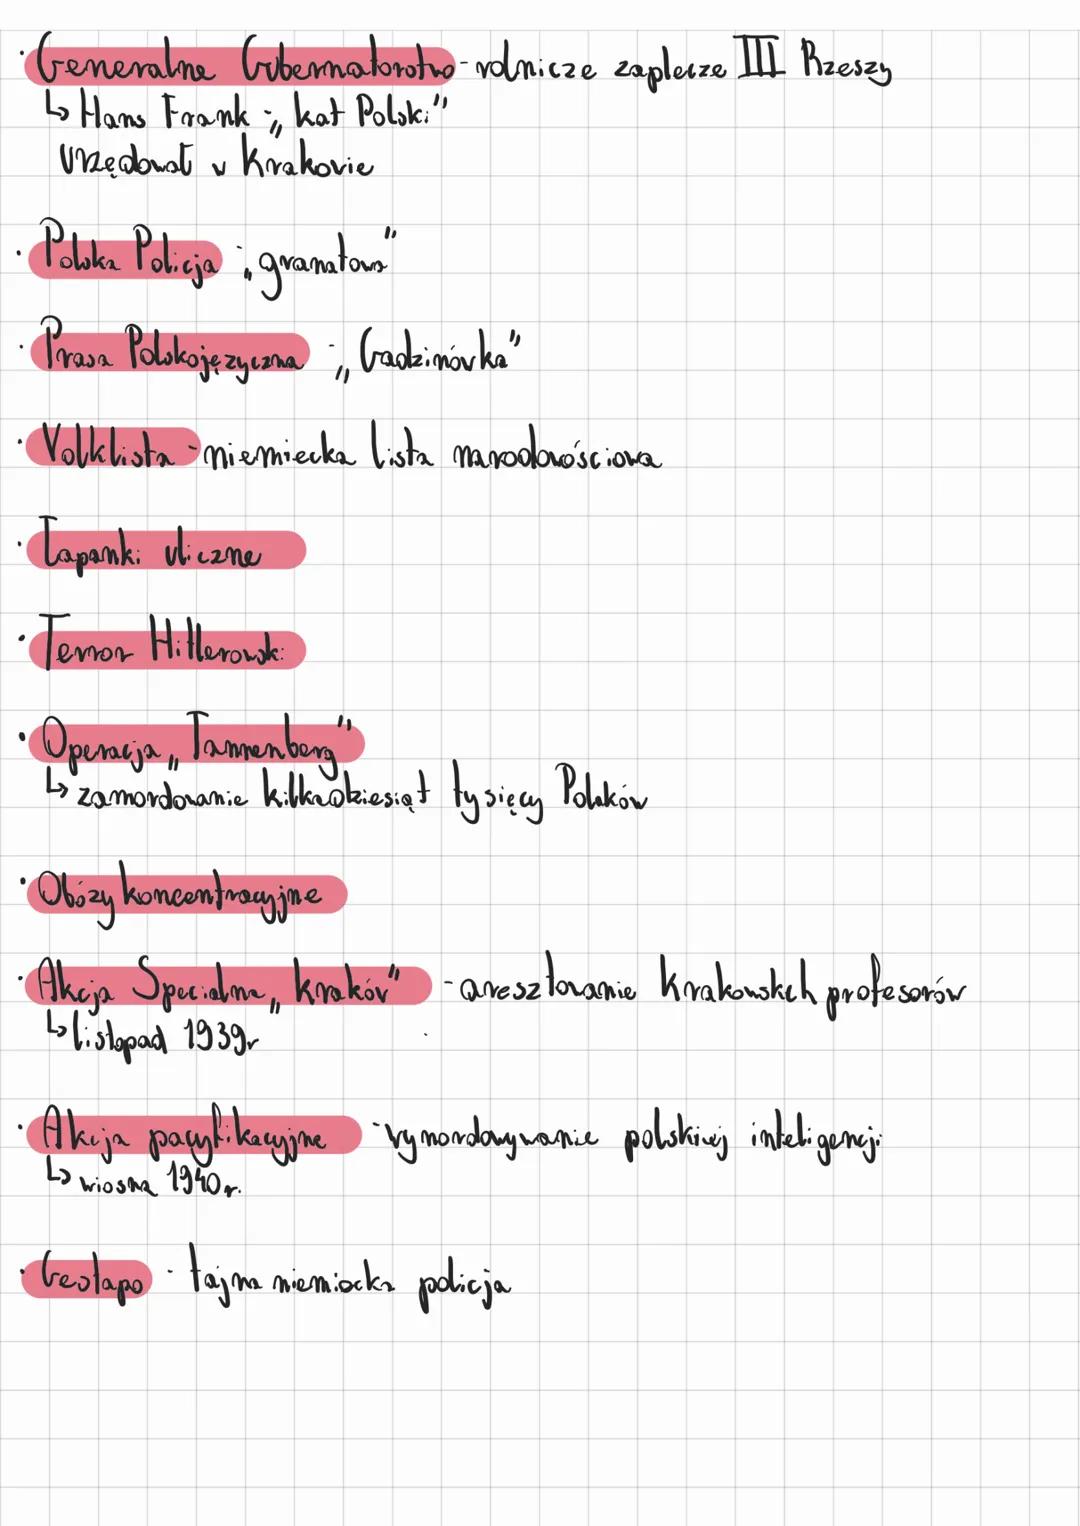 · Generalne Gubernatorstwo - rolnicze zaplecze III Rzeszy
↳ Hans Frank - „kat Polski"
Urzędował w Krakowie
· Polska Policja - „granatowa"
· Prasa Polskojęzyczna - „Gadzinówka"
· Volklista - niemiecka lista narodowościowa
· Łapanki uliczne
· Terror Hitlerowski
· Operacja „Tannenberg"
↳ zamordowanie kilkadziesiąt tysięcy Polaków
· Obózy koncentracyjne
· Akcja Specialna „Kraków" - aresztowanie Krakowskch profesorów
↳ listopad 1939r
· Akcja pacyfikacyjne - wymordowywanie polskiej inteligencji
↳ wiosna 1940r.
· Gestapo - tajna niemiecka policja